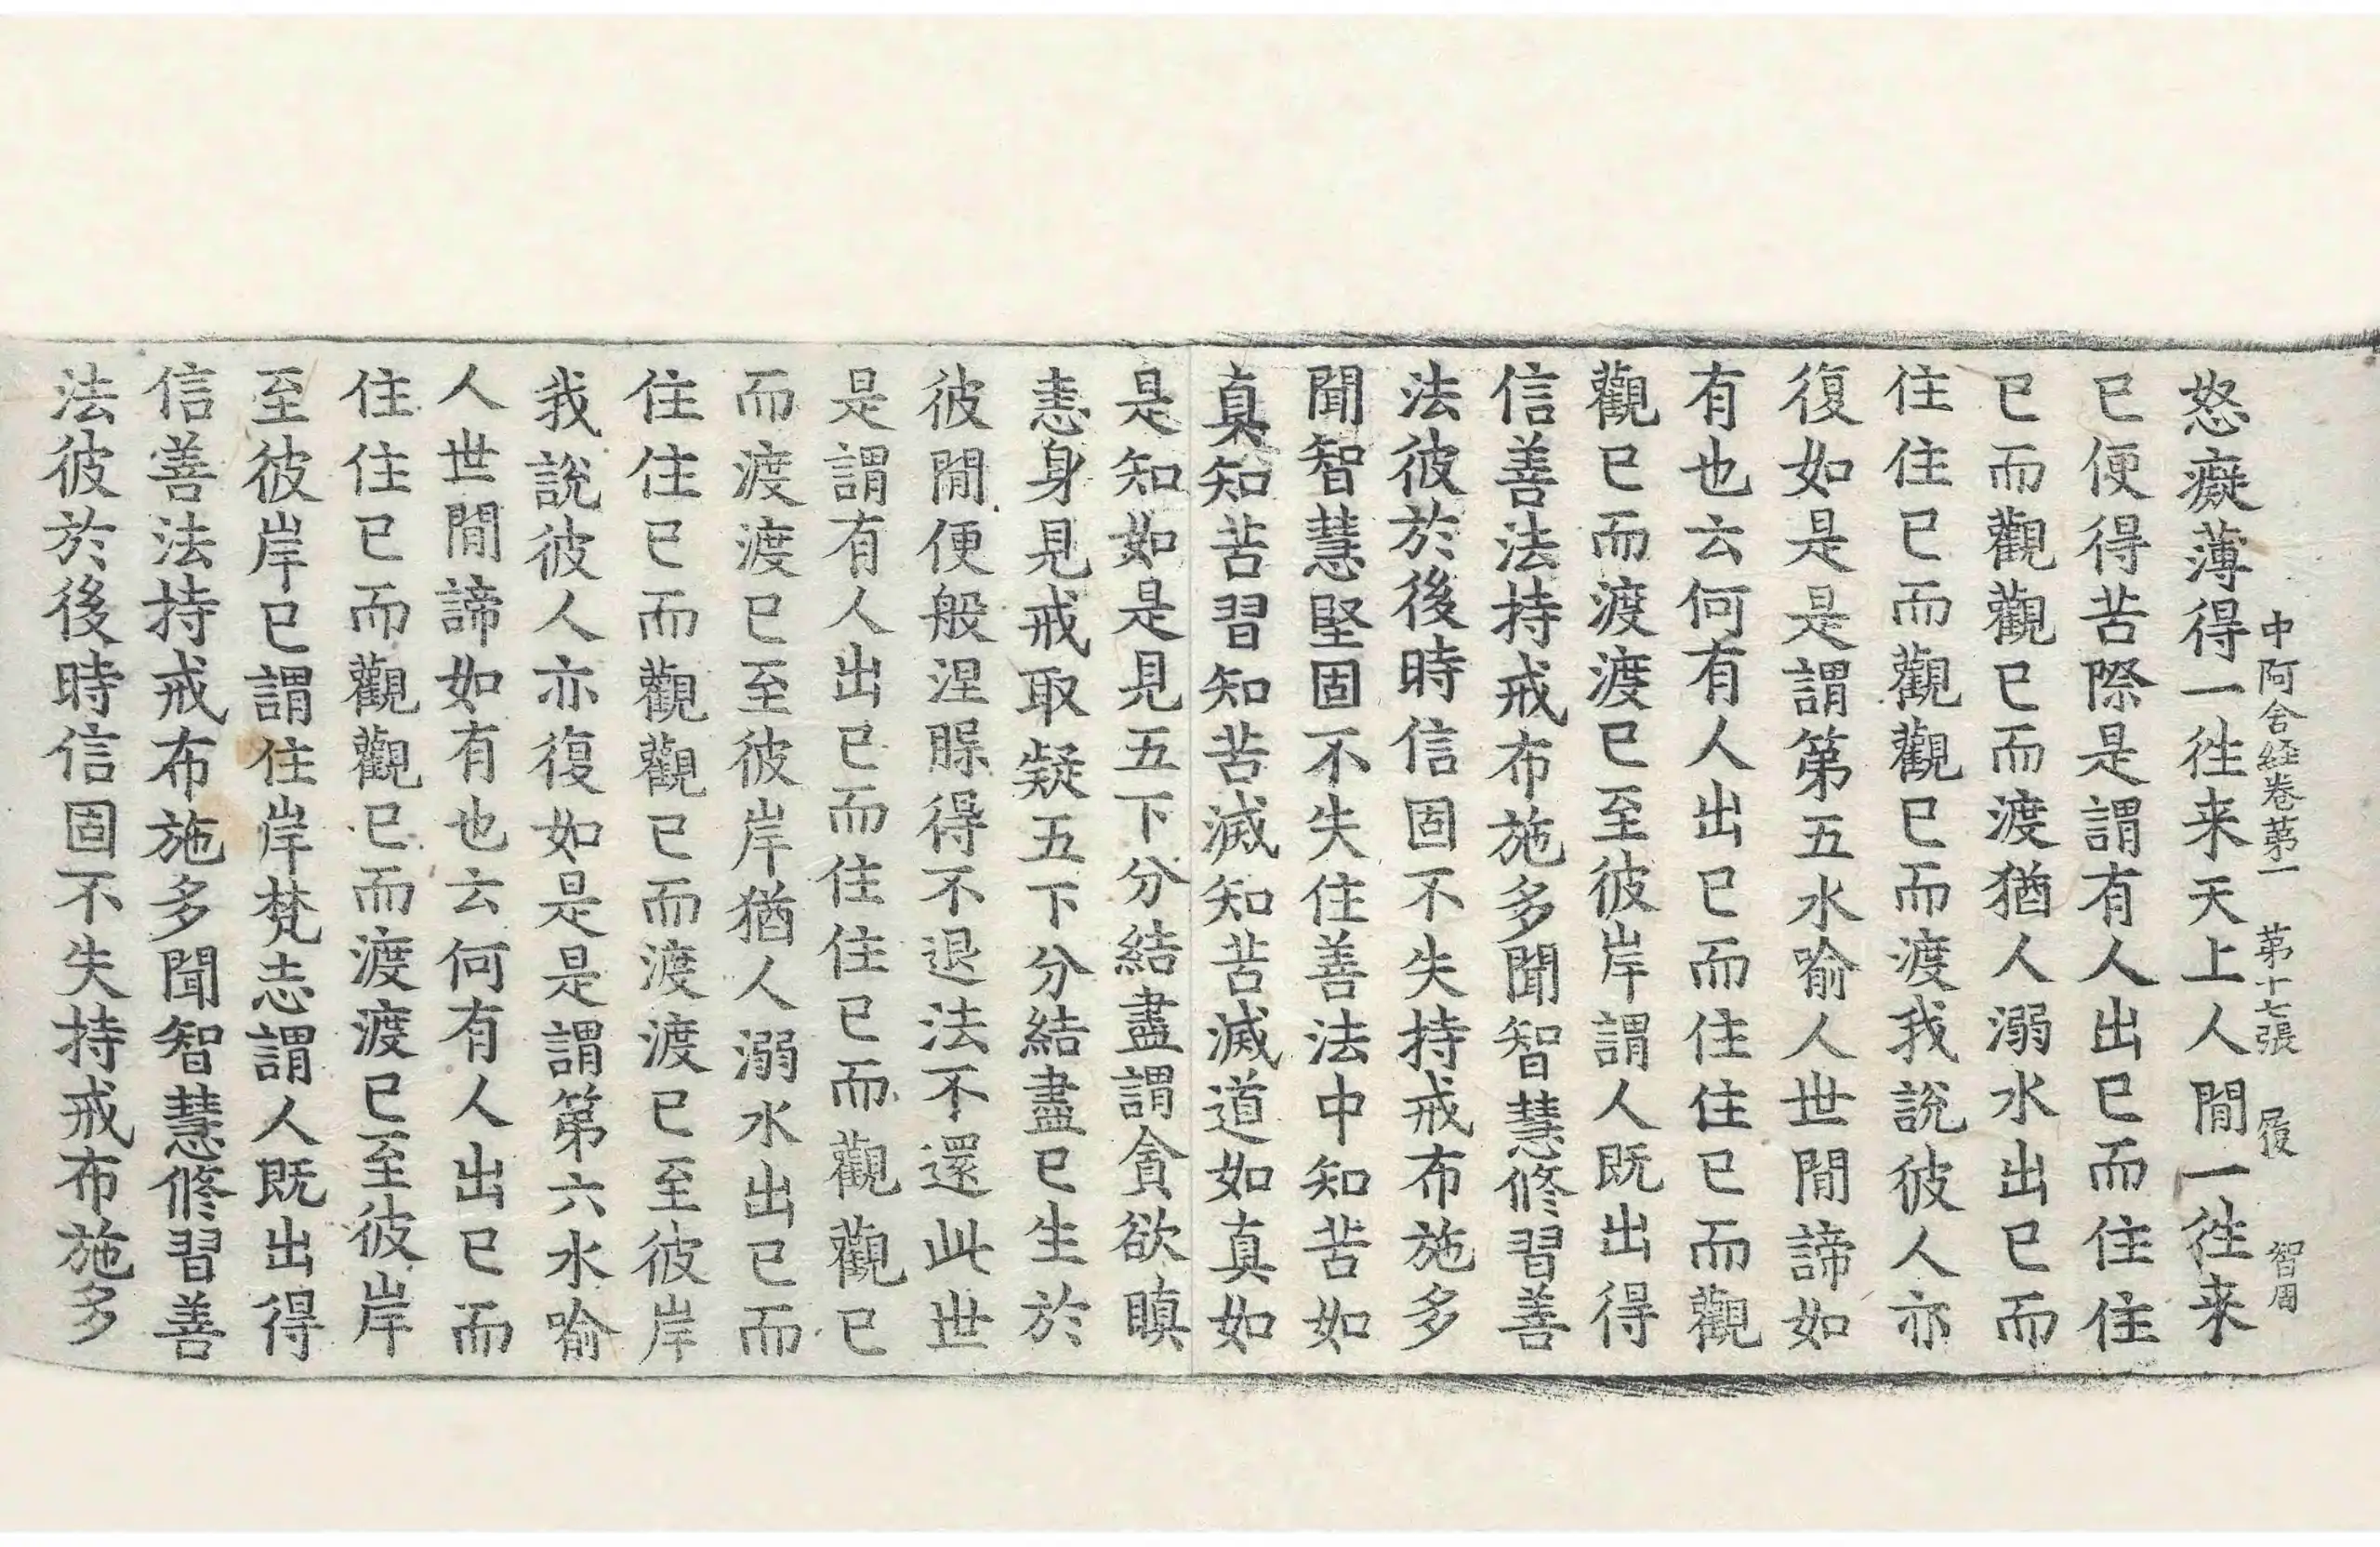 中阿含経卷苐一 苐十七張 履 智周
怒癡薄得一徃来天上人閒一徃来
已便得苦際是謂有人出已而住住
已而觀觀已而渡猶人溺水出已而
住住已而觀觀已而渡我說彼人亦
復如是是謂第五水喻人世閒諦如
有也云何有人出已而住住已而觀
觀已而渡渡已至彼岸謂人既出得
信善法持戒布施多聞智慧修習善
法彼於後時信固不失持戒布施多
聞智慧堅固不失住善法中知苦如
真知苦習知苦滅知苦滅道如真如
是知如是見五下分結盡謂貪欲瞋
恚身見戒取疑五下分結盡已生於
彼閒便般涅槃得不退法不還此世
是謂有人出已而住住已而觀觀已
而渡渡已至彼岸猶人溺水出已而
住住已而觀觀已而渡渡已至彼岸
我說彼人亦復如是是謂第六水喻
人世閒諦如有也云何有人出已而
住住已而觀觀已而渡渡已至彼岸
至彼岸已謂住岸梵志謂人既出得
信善法持戒布施多聞智慧修習善
法彼於後時信固不失持戒布施多